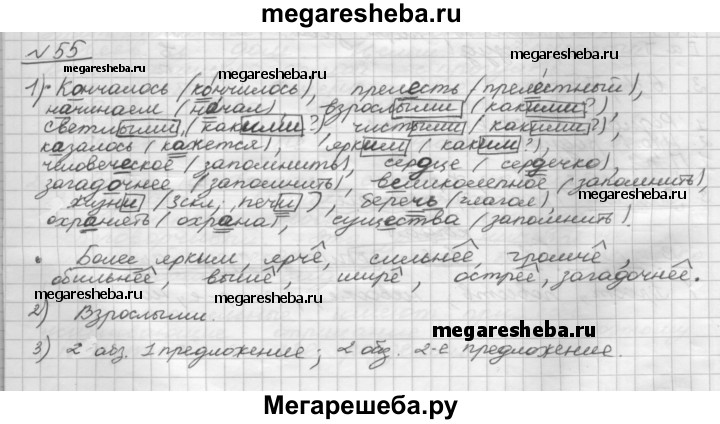 megaresheba.ru
№55
megaresheba.ru
1) • Кончалось (кончилось), прелесть (прелестный),
начинаем (начал) взрослыми (какими?),
светлыми, (какими?) чистыми (какими?),
казалось (кажется), ярким (каким?),
человеческое (запомнить), сердце (сердечко),
загадочнее (запомнить), великолепное (запомнить),
жизни (3скл., печи), беречь (глагол),
охранять (охрана), существа (запомнить).
• Более яркими, ярче, сильнее, громче,
обильнее, выше, шире, острее, загадочнее.
megaresheba.ru
2) Взрослыми.
megaresheba.ru
3) 2 абз. 1 предложение; 2 абз. 2-е предложение.
Мегарешеба.ру